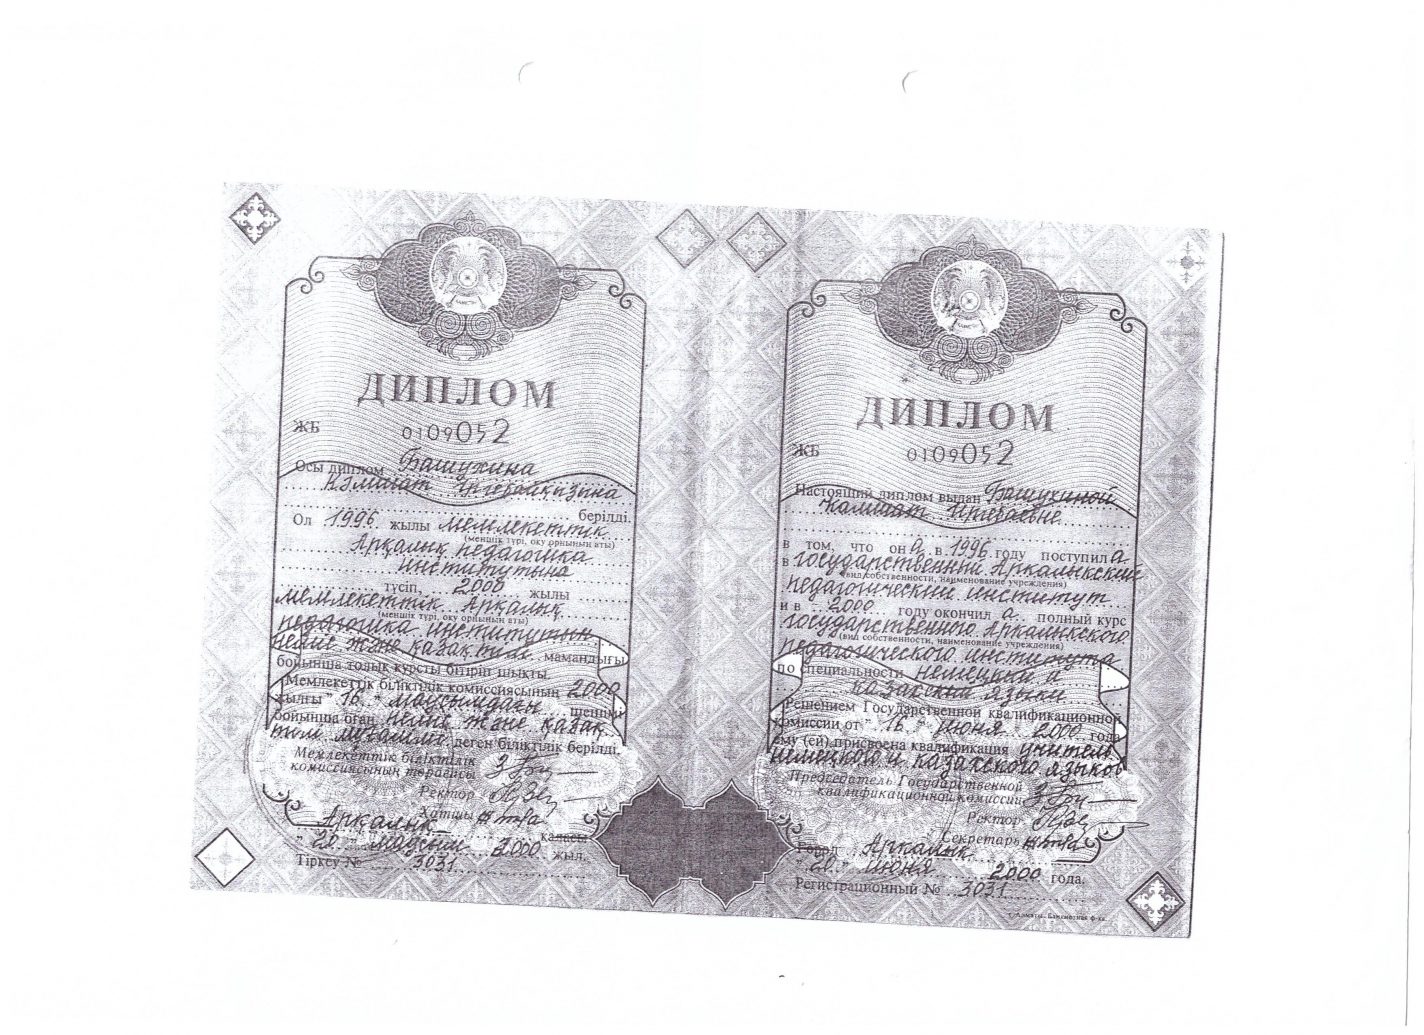 ДИПЛОМ
ЖБ 0109052
Осы диплом Башухина
берілді.
Ол 1996 жылы мемлекеттік
(меншік түрі, оқу орнының аты)
Арқалық педагогика
институтына
түсіп, 2000 жылы
мемлекеттік Арқалық
(меншік түрі, оқу орнының аты)
педагогика институтын
неміс және қазақ тілі мамандығы
бойынша толық курсты бітіріп шықты.
Мемлекеттік біліктілік комиссиясының 2000
жылғы "16" маусымдағы шешімі
бойынша оған неміс және қазақ
тілі мұғалімі деген біліктілік берілді.
Мемлекеттік біліктілік
комиссиясының төрағасы
Ректор
Хатшы
Арқалық қаласы
"20" маусым 2000 жыл.
Тіркеу № 3031
ДИПЛОМ
ЖБ 0109052
Настоящий диплом выдан Башухиной
в том, что она в 1996 году поступила
в государственный Аркалыкский
(вид собственности, наименование учреждения)
педагогический институт
и в 2000 году окончила полный курс
государственного Аркалыкского
(вид собственности, наименование учреждения)
педагогического института
по специальности немецкий и
казахский языки
Решением Государственной квалификационной
комиссии от "16" июня 2000 года
ему (ей) присвоена квалификация учитель
немецкого и казахского языков
Председатель Государственной
квалификационной комиссии
Ректор
Секретарь
Город Аркалык
"20" июня 2000 года.
Регистрационный № 3031
г. Алматы. Банкнотная ф-ка.